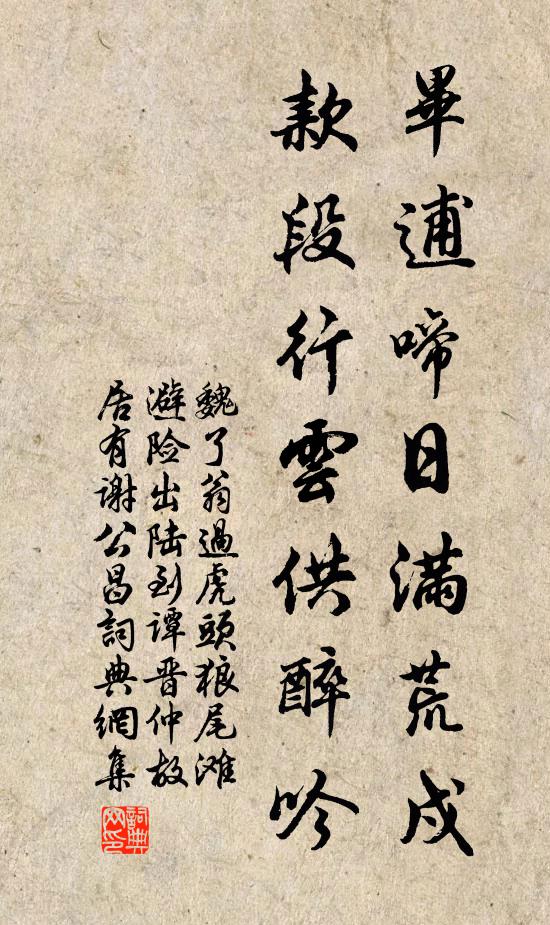 畢逋啼日滿荒戍
款段行雲供醉吟
魏了翁過虎頭狼尾滩
避险出陆到谭晋仲故
居有谢公昌詞典網集
詞典網印